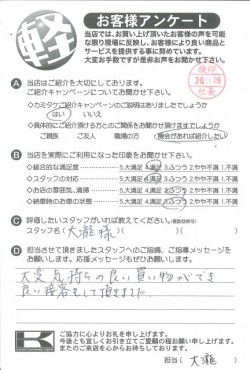 軽
お客様アンケート
当店では、お買い上げ頂いたお客様の声を可能
な限り現場に反映し、お客様により良い商品と
サービスを提供する事に努めています。
大変お手数ですが是非お声をお聞かせ下さい。
検印
30.1.09
社長
A 当店はご紹介を大切にしております。
ご紹介キャンペーンについてお聞かせ下さい。
◇カミタケご紹介キャンペーンのご説明はありましたでしょうか
はい いいえ
◇具体的にご紹介頂ける方とのご関係をお聞かせ頂けますでしょうか
ご親族 ご友人 職場の方 機会があれば紹介したい
B 当店を実際にご利用になった印象をお聞かせ下さい。
◇総合的な満足度 5.大満足 4.満足 3.ふつう 2.やや不満 1.不満
◇スタッフの対応 5.大満足 4.満足 3.ふつう 2.やや不満 1.不満
◇お店の雰囲気、清掃 5.大満足 4.満足 3.ふつう 2.やや不満 1.不満
◇納車時のお車の状態 5.大満足 4.満足 3.ふつう 2.やや不満 1.不満
C 評価したいスタッフがいれば教えてください。(複数回答可)
スタッフ名( 大瀧様 )( )
D 担当させて頂きましたスタッフへのご指摘、ご指導メッセージを
お願いします。応援メッセージもお待ちしております。
大変気持ちの良い買い物ができ
良い接客をして頂きました。
K
ご協力に心よりお礼を申し上げます。
今後とも宜しくお引き立てご愛顧の程お願い申し上げます。
またのご来店を心からお待ちしております。
担当( 大瀧 )